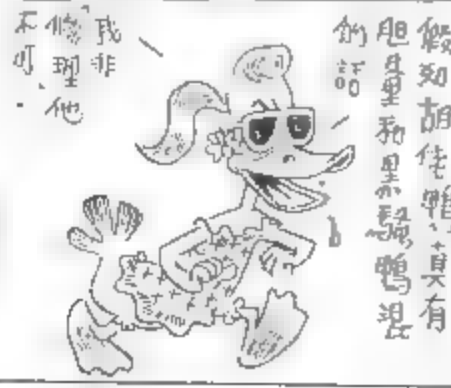 假如胡佬鴨、真有
胆量和黑心騷鴨混
的話
我非
修理他
不可.